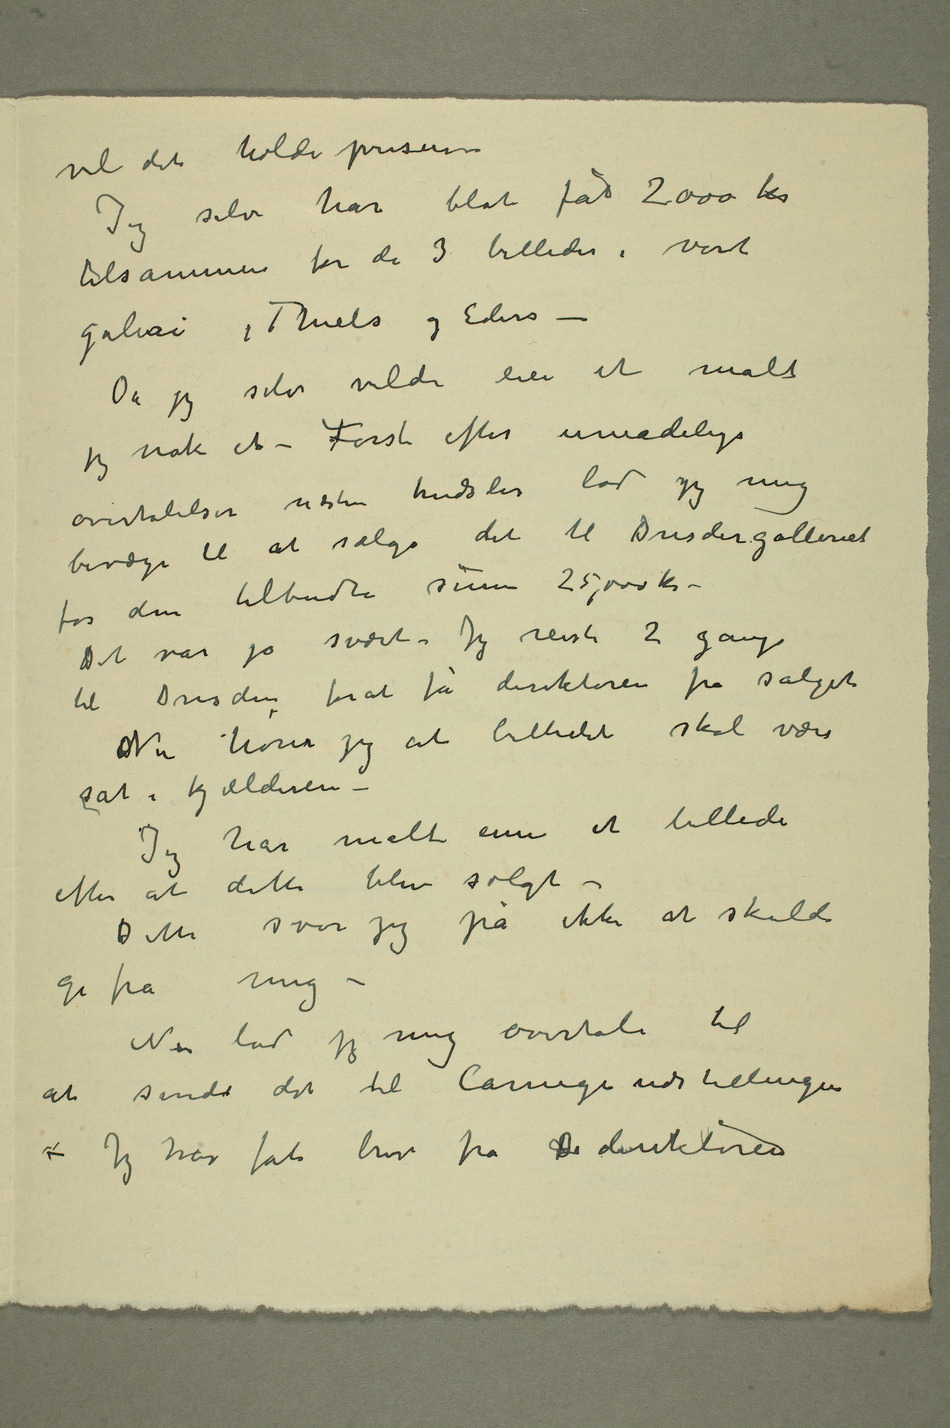 vil det holde prisen –
Jeg selv har blot fåt 2000 kr
tilsammen for de 3 billeder i vort
galeri, Thiels og Eders –
Da jeg selv vilde eie et malte
jeg nok et – Først efter umådelige
overtalelser næsten trudsler lod jeg mig
bevæge til at sælge det til Dresdergalleriet
for den tilbudte sum 25,000 kr –
Det var jo svært – Jeg reiste 2 gange
til Dresden for at få direktøren fra salget
Nu hører jeg at billedet skal være
sat i kjælderen –
Jeg har malt enn et billede
efter at dette blev solgt –
Dette svor jeg på ikke at skulde
gi fra mig –
Nu lod jeg mig overtale til
at sende det til Carnegieudstillingen
– Jeg har fåt brev fra direktøren